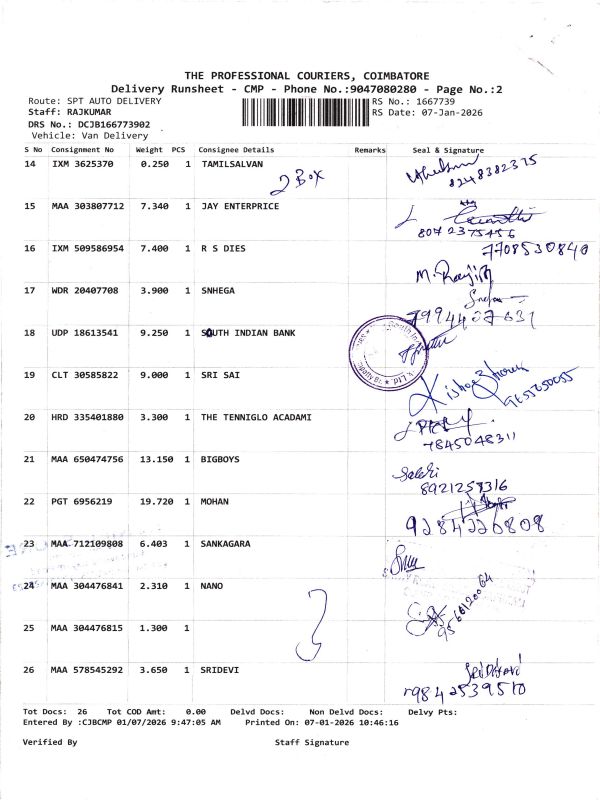 THE PROFESSIONAL COURIERS, COIMBATORE
Delivery Runsheet - CMP - Phone No.:9047080280 - Page No.:2
Route: SPT AUTO DELIVERY RS No.: 1667739
Staff: RAJKUMAR RS Date: 07-Jan-2026
DRS No.: DCJB166773902
Vehicle: Van Delivery
S No Consignment No Weight PCS Consignee Details Remarks Seal & Signature
14 IXM 3625370 0.250 1 TAMILSALVAN
2 Box 8248382375
15 MAA 303807712 7.340 1 JAY ENTERPRICE
8072375456
16 IXM 509586954 7.400 1 R S DIES 7708530840
M. Ranjith
17 WDR 20407708 3.900 1 SNHEGA
7994427631
18 UDP 18613541 9.250 1 SOUTH INDIAN BANK
19 CLT 30585822 9.000 1 SRI SAI
20 HRD 335401880 3.300 1 THE TENNIGLO ACADAMI
7845048311
21 MAA 650474756 13.150 1 BIGBOYS
8921257316
22 PGT 6956219 19.720 1 MOHAN
9284220808
23 MAA 712109808 6.403 1 SANKAGARA
24 MAA 304476841 2.310 1 NANO
9566120064
25 MAA 304476815 1.300 1
26 MAA 578545292 3.650 1 SRIDEVI
9842539510
Tot Docs: 26 Tot COD Amt: 0.00 Delvd Docs: Non Delvd Docs: Delvy Pts:
Entered By :CJBCMP 01/07/2026 9:47:05 AM Printed On: 07-01-2026 10:46:16
Verified By Staff Signature